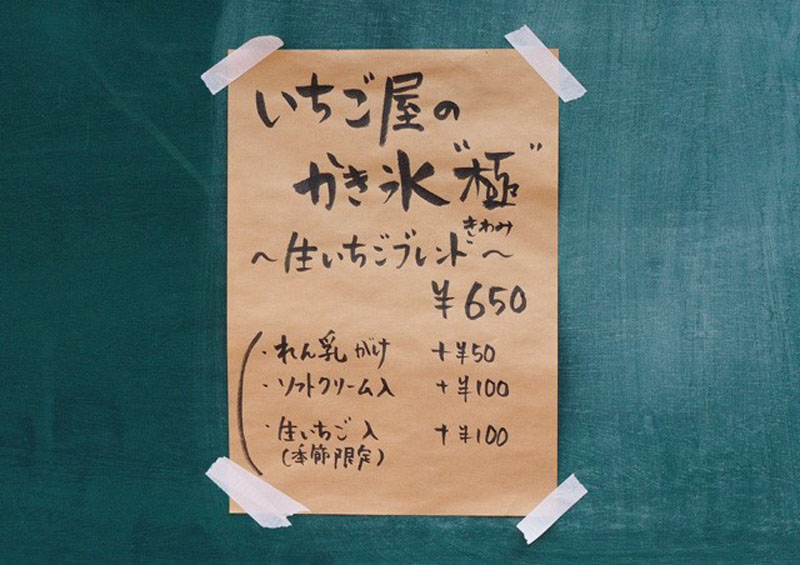 いちご屋の
かき氷"極"
きわみ
～生いちごブレンド～
¥650
・れん乳がけ +¥50
・ソフトクリーム入 +¥100
・生いちご入 +¥100
(季節限定)